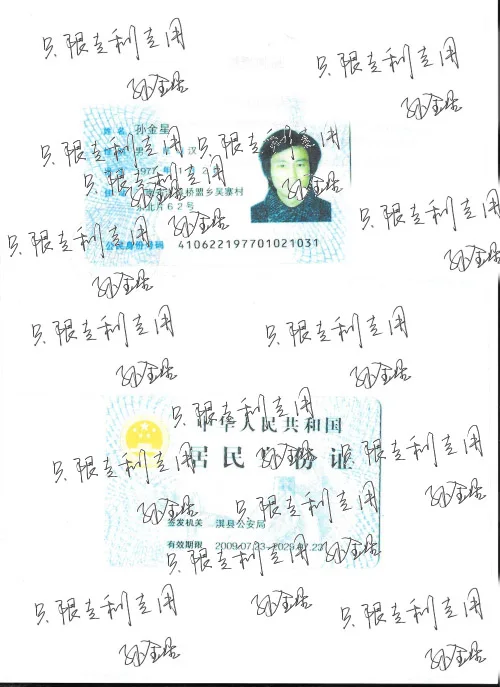 只限专利专用
只限专利专用
孙金星
孙金星
姓名 孙金星
只限专利专用
只限专利专用
男 汉
只限专利专用
孙金星
孙金星
1977
桥盟乡吴寨村
北片62号
只限专利专用
孙金星
只限专利专用
公民身份号码 410622197701021031
孙金星
孙金星
只限专利专用
只限专利专用
孙金星
孙金星
只限专利专用
中华人民共和国
居民身份证
孙金星
只限专利专用
只限专利专用
孙金星
孙金星
只限专利专用
签发机关 淇县公安局
有效期限 2009.07.23-2029.07.23
孙金星
只限专利专用
孙金星
只限专利专用
只限专利专用
孙金星
孙金星